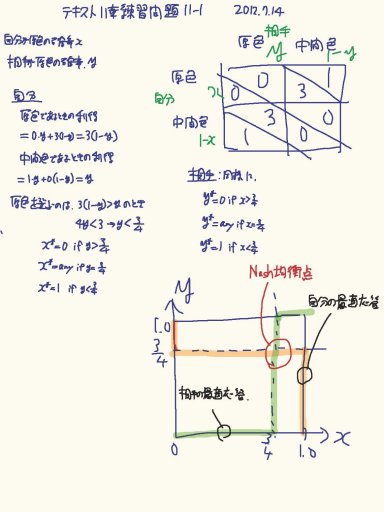 テキスト11章練習問題11-1 2012.7.14
自分が原色の確率x
相手が原色の確率y
自分
原色であるときの利得
=0・y+3(1-y)=3(1-y)
中間色であるときの利得
=1・y+0(1-y)=y
原色を選ぶのは、3(1-y)>yのとき
4y<3→y<3/4
x*=0 if y>3/4
x*=any if y=3/4
x*=1 if y<3/4
相手
原色 中間色
y 1-y
自分
原色
x
中間色
1-x
0 0
3 1
1 3
0 0
相手:同様に、
y*=0 if x>3/4
y*=any if x=3/4
y*=1 if x<3/4
Nash均衡点
自分の最適応答
相手の最適応答
y
1.0
3/4
0
3/4
1.0
x